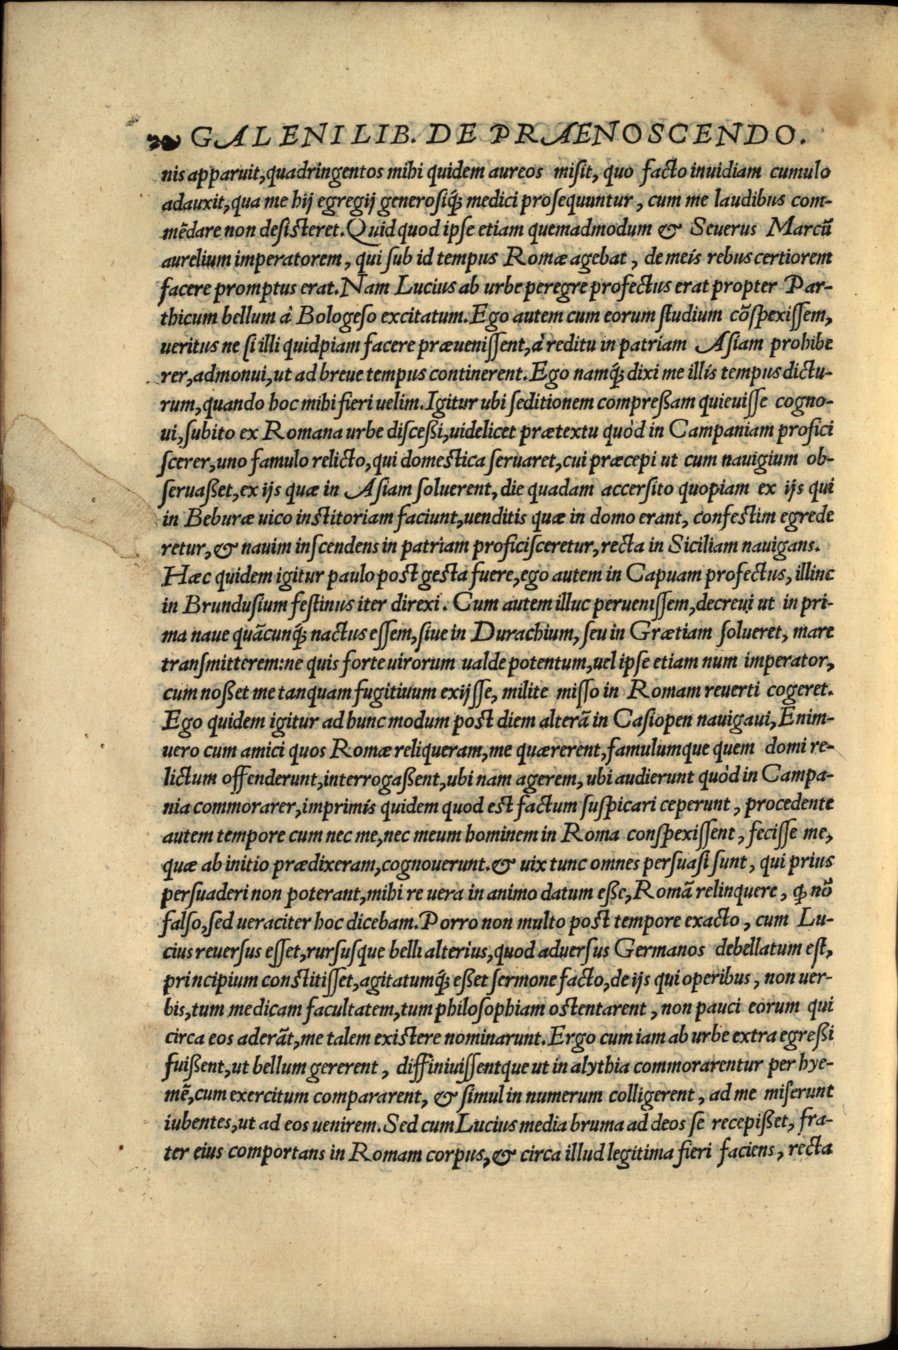 GALENI LIB. DE PRAENOSCENDO.
nis apparuit, quadringentos mihi quidem aureos misit, quo facto inuidiam cumulo
adauxit, qua me hij egregij generosiq́ꝫ medici prosequuntur, cum me laudibus com-
mẽdare non desisteret. Quid quod ipse etiam quemadmodum & Seuerus Marcũ
aurelium imperatorem, qui sub id tempus Romæ agebat, de meis rebus certiorem
facere promptus erat. Nam Lucius ab urbe peregre profectus erat propter Par-
thicum bellum à Bologeso excitatum. Ego autem cum eorum studium cõspexissem,
ueritus ne si illi quidpiam facere præuenissent, à reditu in patriam Asiam prohibe
rer, admonui, ut ad breue tempus continerent. Ego namq́ꝫ dixi me illis tempus dictu-
rum, quando hoc mihi fieri uelim. Igitur ubi seditionem compreßam quieuisse cogno-
ui, subito ex Romana urbe disceßi, uidelicet prætextu quòd in Campaniam profici
scerer, uno famulo relicto, qui domestica seruaret, cui præcepi ut cum nauigium ob-
seruaßet, ex ijs quæ in Asiam soluerent, die quadam accersito quopiam ex ijs qui
in Beburæ uico institoriam faciunt, uenditis quæ in domo erant, confestim egrede
retur, & nauim inscendens in patriam proficisceretur, recta in Siciliam nauigans.
Hæc quidem igitur paulo post gesta fuere, ego autem in Capuam profectus, illinc
in Brundusium festinus iter direxi. Cum autem illuc peruenissem, decreui ut in pri-
ma naue quãcunq́ꝫ nactus essem, siue in Durachium, seu in Grætiam solueret, mare
transmitterem: ne quis forte uirorum ualde potentum, uel ipse etiam num imperator,
cum noßet me tanquam fugitiuum exijsse, milite misso in Romam reuerti cogeret.
Ego quidem igitur ad hunc modum post diem alterã in Casiopen nauigaui, Enim-
uero cum amici quos Romæ reliqueram, me quærerent, famulumque quem domi re-
lictum offenderunt, interrogaßent, ubi nam agerem, ubi audierunt quòd in Campa-
nia commorarer, imprimis quidem quod est factum suspicari ceperunt, procedente
autem tempore cum nec me, nec meum hominem in Roma conspexissent, fecisse me,
quæ ab initio prædixeram, cognouerunt. & uix tunc omnes persuasi sunt, qui prius
persuaderi non poterant, mihi re uera in animo datum eße, Romã relinquere, ꝙ nõ
falso, sed ueraciter hoc dicebam. Porro non multo post tempore exacto, cum Lu-
cius reuersus esset, rursusque belli alterius, quod aduersus Germanos debellatum est,
principium constitisset, agitatumq́ꝫ eßet sermone facto, de ijs qui operibus, non uer-
bis, tum medicam facultatem, tum philosophiam ostentarent, non pauci eorum qui
circa eos aderãt, me talem existere nominarunt. Ergo cum iam ab urbe extra egreßi
fuißent, ut bellum gererent, diffiniuissentque ut in alythia commorarentur per hye-
mẽ, cum exercitum compararent, & simul in numerum colligerent, ad me miserunt
iubentes, ut ad eos uenirem. Sed cum Lucius media bruma ad deos se recepißet, fra-
ter eius comportans in Romam corpus, & circa illud legitima fieri faciens, recta